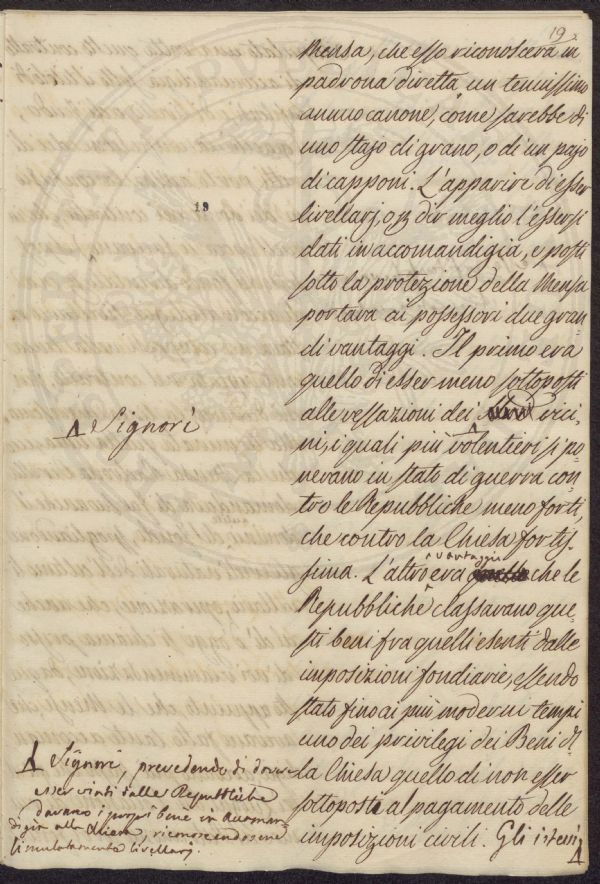 19
Mensa, che esso riconoscerà in
padrona diretta un tenuissimo
annuo canone, come sarebbe di
uno stajo di grano, o di un pajo
di capponi. L'apparire di esser
livellarj, o p dir meglio l'essersi
dati in accomandigia, e posti
sotto la protezione della Mensa
portava ai possessori due gran-
di vantaggi. Il primo era
quello di esser meno sottoposti
alle vessazioni dei vici-
ni, i quali più volentieri si po-
nevano in stato di guerra con-
tro le Repubbliche meno forti,
che contro la Chiesa fortis-
sima. L'altro era vantaggio che le
Repubbliche classavano que-
sti beni fra quelli esenti dalle
imposizioni fondiarie, essendo
stato fino ai più moderni tempi
uno dei privilegi dei Beni di
la Chiesa quello di non esser
sottoposti al pagamento delle
imposizioni civili. Gli istessi
19
Signori
Signori, prevedendo di dover
esser vinti dalle Repubbliche
davano i propri bene in Accoman
digia alla Chiesa, riconoscendosene
simulatamente livellarj.